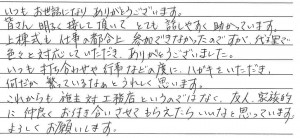 いつもお世話になり ありがとうございます。
皆さん 明るく接して頂いて とても 話しやすく助かっています。
上棟式も 仕事の都合上 参加できなかったのですが、代理で
色々と対応していただき、ありがとうございました。
いつも 打ち合わせや行事などの度に、ハガキをいただき、
何だか 繋っているなぁと うれしく思います。
これからも 施主対工務店というのではなく、友人、家族的
に 仲良く お付き合いさせてもらえたら いいなと思っています。
よろしくお願いします。